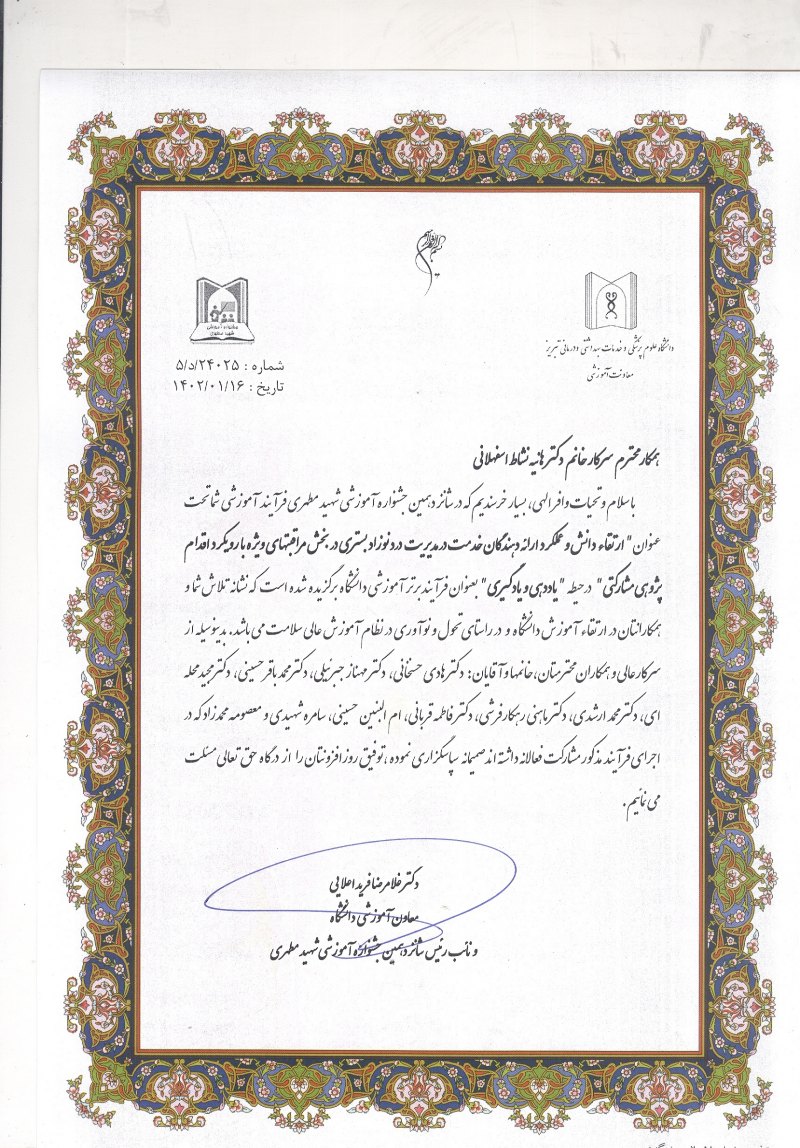 بسم الله الرحمن الرحیم
جشنواره آموزشی
شهید مطهری
دانشگاه علوم پزشکی و خدمات بهداشتی و درمانی تبریز
معاونت آموزشی
شماره : ۵/د/۲۴۰۲۵
تاریخ : ۱۴۰۲/۰۱/۱۶
همکار محترم سرکار خانم دکتر هانیه نشاط اسفهلانی
با سلام و تحیات وافر الهی، بسیار خرسندیم که در شانزدهمین جشنواره آموزشی شهید مطهری فرآیند آموزشی شما تحت
عنوان "ارتقاء دانش و عملکرد ارائه دهندگان خدمت در مدیریت درد نوزاد بستری در بخش مراقبتهای ویژه با رویکرد اقدام
پژوهی مشارکتی" در حیطه "یاددهی و یادگیری" بعنوان فرآیند برتر آموزشی دانشگاه برگزیده شده است که نشانه تلاش شما و
همکارانتان در ارتقاء آموزش دانشگاه و در راستای تحول و نوآوری در نظام آموزش عالی سلامت می باشد. بدینوسیله از
سرکار عالی و همکاران محترمتان، خانمها و آقایان: دکتر هادی حسنخانی، دکتر مهناز جبرئیلی، دکتر محمد باقر حسینی، دکتر مجید محله
ای، دکتر محمد ارشدی، دکتر ماهنی رهکار فرشی، دکتر فاطمه قربانی، ام البنین حسینی، سامره شهیدی و معصومه محمدزاد که در
اجرای فرآیند مذکور مشارکت فعالانه داشته اند صمیمانه سپاسگزاری نموده ، توفیق روز افزونتان را از درگاه حق تعالی مسئلت
می نمائیم .
دکتر غلامرضا فرید اعلایی
معاون آموزشی دانشگاه
و نائب رئیس شانزدهمین جشنواره آموزشی شهید مطهری